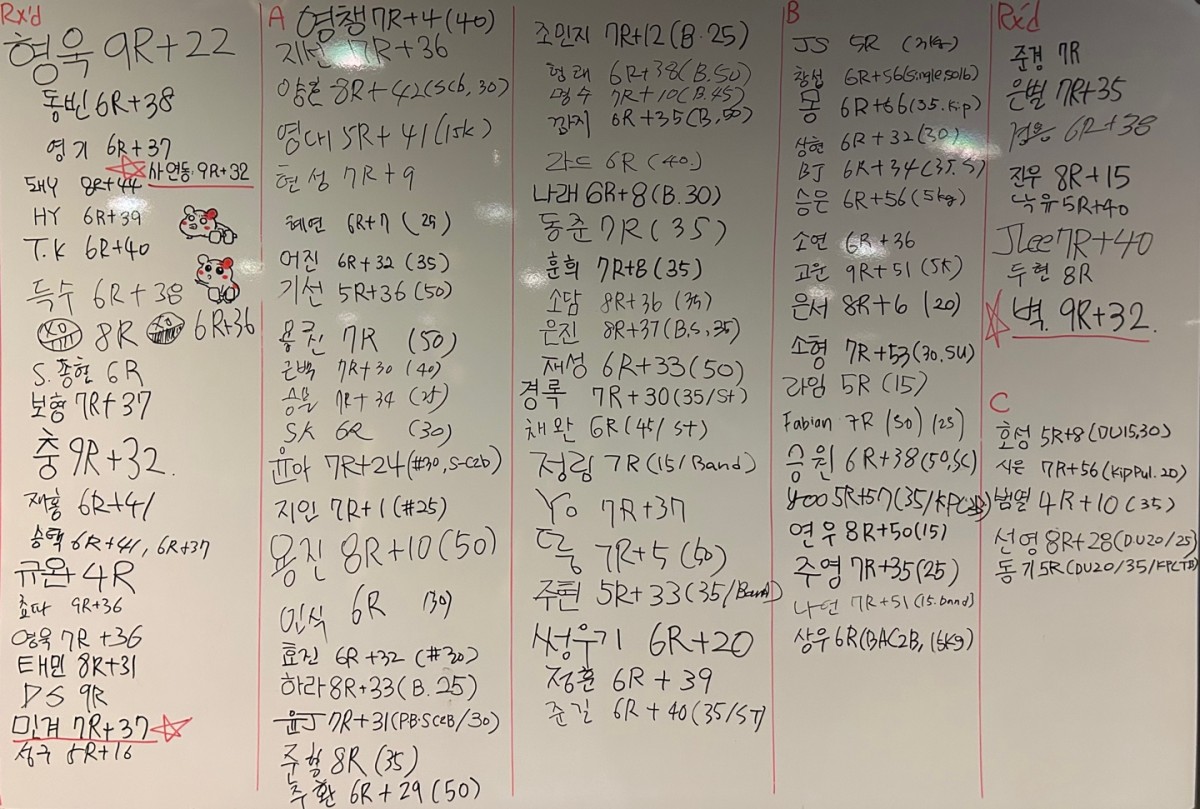 Rx'd
형욱 9R+22
동빈 6R+38
영기 6R+37
사연동 9R+32
돼니 8R+44
HY 6R+39
T.K 6R+40
득수 6R+38
XO 8R XO 6R+36
S.종현 6R
보형 7R+37
충 9R+32.
재홍 6R+41
승택 6R+41, 6R+37
규완 4R
쵸파 9R+36
영욱 7R+36
태민 8R+31
DS 9R
민겨 7R+37
성구 8R+16
A 영챙 7R+4(40)
지넌 7R+36
양흔 8R+42(Scb, 30)
영대 5R+41(15k)
현성 7R+9
혜연 6R+7 (25)
어진 6R+32 (35)
기선 5R+36 (50)
용진 7R (50)
근백 7R+30 (40)
승윤 7R+34 (25)
SK 6R (30)
윤아 7R+24(#30, S-C2b)
지인 7R+1(#25)
용진 8R+10(50)
민식 6R (30)
효진 6R+32 (#30)
하라 8R+33(B.25)
윤J 7R+31(PB.SC2B/30)
주형 8R(35)
주환 6R+29(50)
조민지 7R+12(B.25)
형래 6R+38(B.50)
명수 7R+10(B.45)
깜지 6R+35(B,50)
라드 6R (40.)
나래 6R+8(B.30)
동준 7R(35)
훈희 7R+8(35)
소담 8R+36 (35)
은진 8R+37(B.S,35)
재성 6R+33(50)
경록 7R+30(35/St)
채완 6R(45/ST)
정림 7R(15/Band)
Yo 7R+37
7R+5(50)
주현 5R+33(35/Band)
썽우기 6R+20
정훈 6R+39
준길 6R+40(35/ST)
B
JS 5R
창섭 6R+56(Single 50lb)
몽 6R+66(35.Kip)
상현 6R+32(30)
BJ 6R+34(35.S)
승은 6R+56(5kg)
소연 6R+36
고운 9R+51(5K)
은서 8R+6 (20)
소형 7R+53(30,SU)
라임 5R(15)
Fabian 7R (50) (25)
승원 6R+38(50,SC)
YOO 5R+57(35/KPC2B)
연우 8R+50(15)
주영 7R+35(25)
나던 7R+51(15.band)
상우 6R(BAC2B, 15kg)
Rx'd
준경 7R
은별 7R+35
6R+38
진우 8R+15
녹유 5R+40
JLee 7R+40
두현 8R
벽. 9R+32.
C
호성 5R+8(DU15,30)
시은 7R+56(KipPul.20)
범열 4R+10(35)
선영 8R+28(DU20/25)
동기 5R(DU20/35/KPCTB)